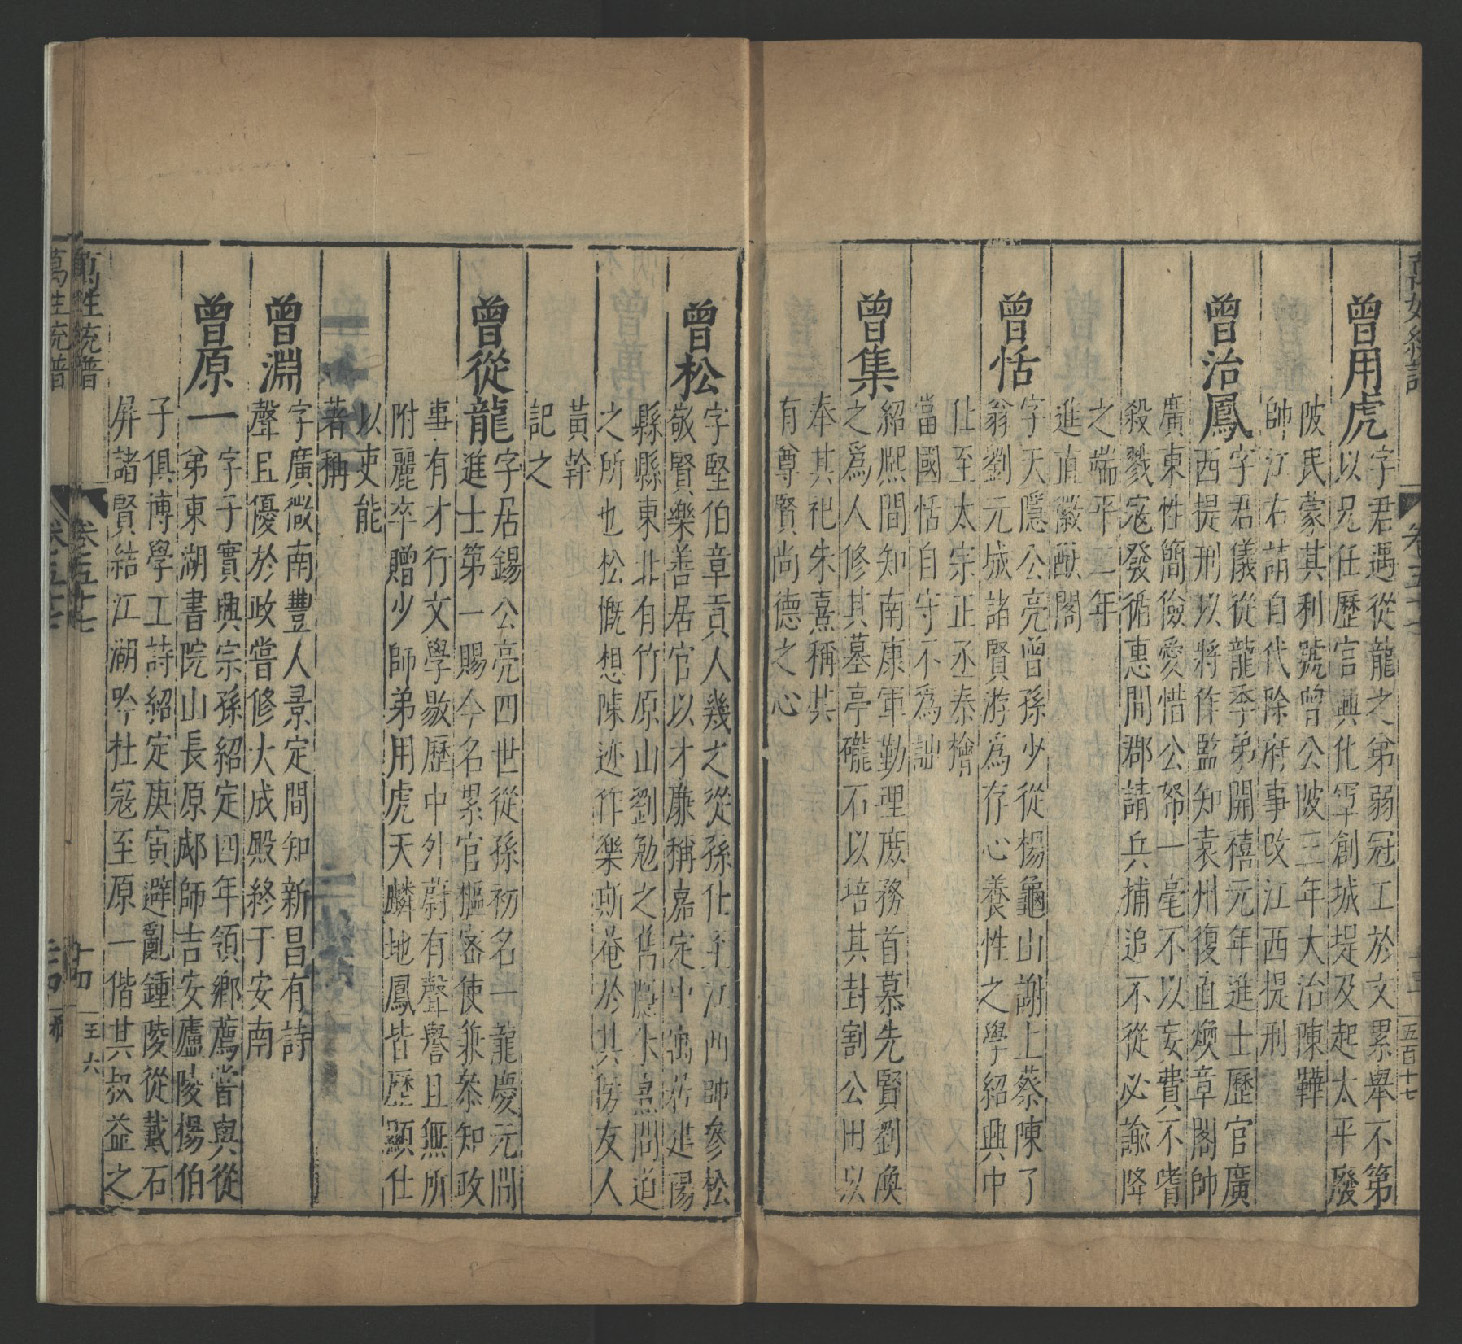 曾用虎字君遇從龍之弟弱冠工於文累舉不第
以兄任歷官興化軍創城堤及起太平廢
陂民蒙其利號曾公陂三年大治陳韡
帥江右請自代除府事改江西提刑
曾治鳳字君儀從龍季弟開禧元年進士歷官廣
西提刑以將作監知袁州復直煥章閣帥
廣東性簡儉愛惜公帑一毫不以妄費不嗜
殺戮寇發循惠間郡請兵捕追不從必諭降
之端平二年
進直徽猷閣
曾恬字天隱公亮曾孫少從楊龜山謝上蔡陳了
翁劉元城諸賢游為存心養性之學紹興中
仕至太宗正丞秦檜
當國恬自守不為詘
曾集紹熙間知南康軍勤理庶務首慕先賢劉渙
之為人修其墓亭礲石以培其封割公田以
奉其祀朱熹稱其
有尊賢尚德之心
曾松字堅伯章貢人幾之從孫仕至江西帥參松
敬賢樂善居官以才廉稱嘉定中寓居建陽
縣縣東北有竹原山劉勉之舊隱朱熹問道
之所也松慨想陳迹作樂斯菴於其傍友人
黃幹
記之
曾從龍字居錫公亮四世從孫初名一龍慶元間
進士第一賜今名累官樞密使兼叅知政
事有才行文學敭歷中外蔚有聲譽且無所
附麗卒贈少師弟用虎天麟地鳳皆歷顯仕
以吏能
著稱
曾淵字廣微南豐人景定間知新昌有詩
聲且優於政嘗修大成殿終于安南
曾原一字子實興宗孫紹定四年領鄉薦嘗與從
弟東湖書院山長原郕師吉安廬陵楊伯
子俱博學工詩紹定庚寅避亂鍾陵從戴石
屏諸賢結江湖吟社寇至原一偕其叔益之
萬姓統譜 卷五十七 十四